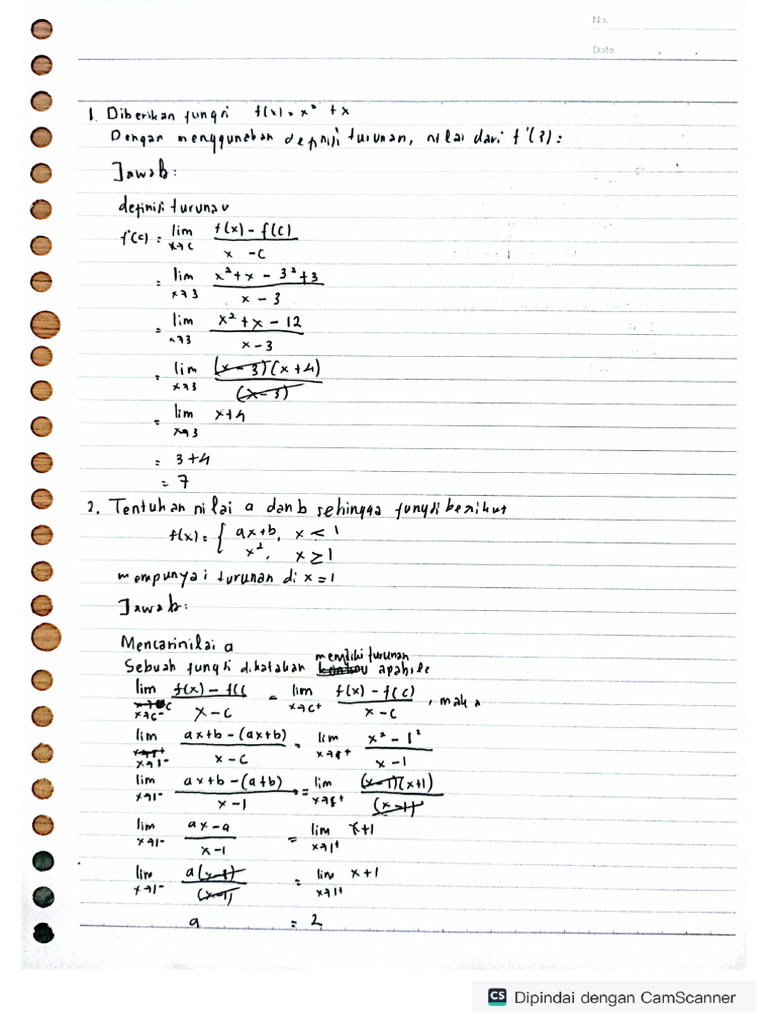 No.
Date
1. Diberikan fungsi f(x) = x² + x
Dengan menggunakan definisi turunan, nilai dari f'(3) =
Jawab:
definisi turunan
f'(c) = lim x→c (f(x) - f(c)) / (x - c)
= lim x→3 (x² + x - 3² + 3) / (x - 3)
= lim x→3 (x² + x - 12) / (x - 3)
= lim x→3 (x - 3)(x + 4) / (x - 3)
= lim x→3 x + 4
= 3 + 4
= 7
2. Tentukan nilai a dan b sehingga fungsi berikut
f(x) = { ax + b, x < 1
x², x ≥ 1
mempunyai turunan di x = 1
Jawab:
Mencari nilai a
Sebuah fungsi dikatakan memiliki turunan apabila
lim x→c⁻ (f(x) - f(c / (x - c) = lim x→c⁺ (f(x) - f(c)) / (x - c), maka
lim x→1⁻ (ax + b - (ax + b)) / (x - c) = lim x→1⁺ (x² - 1²) / (x - 1)
lim x→1⁻ (ax + b - (a + b)) / (x - 1) = lim x→1⁺ (x - 1)(x + 1) / (x - 1)
lim x→1⁻ (ax - a) / (x - 1) = lim x→1⁺ x + 1
lim x→1⁻ a(x - 1) / (x - 1) = lim x→1⁺ x + 1
a = 2
CS Dipindai dengan CamScanner